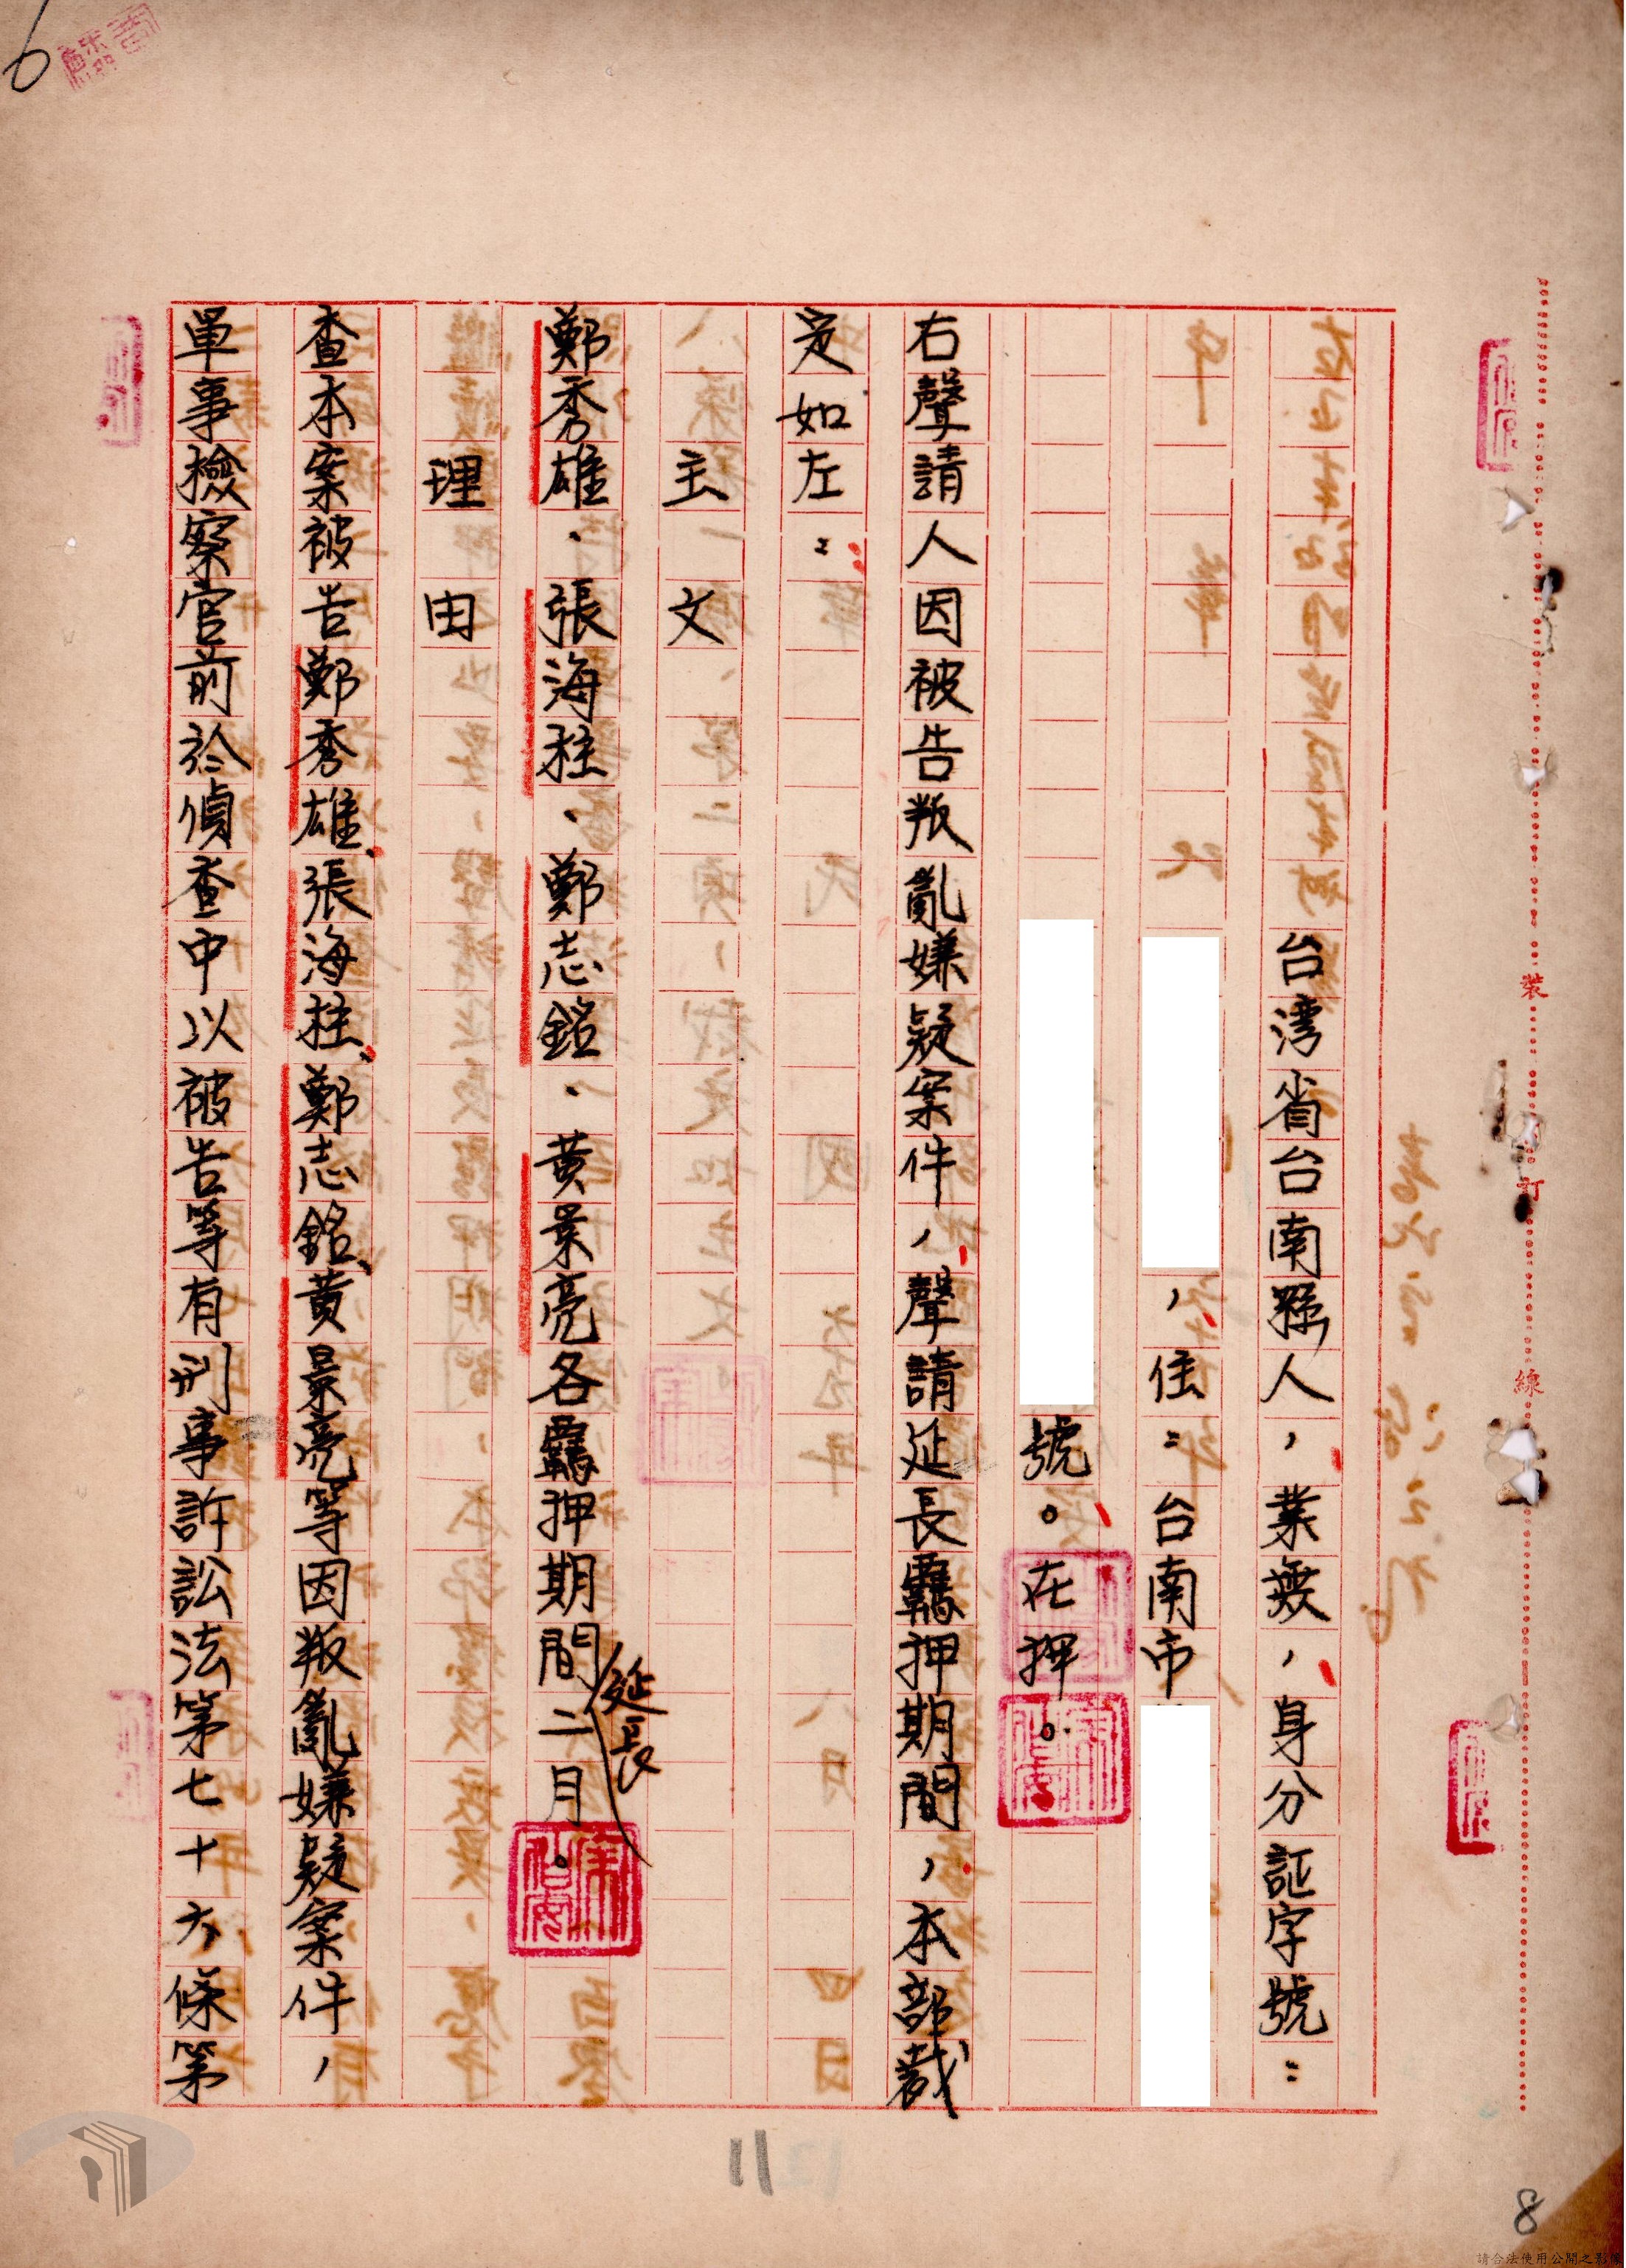 台湾省台南縣人，業無，身分証字號：
，住：台南市
號。在押。
右聲請人因被告叛亂嫌疑案件，聲請延長羈押期間，本部裁
定如左：
主文
鄭秀雄、張海柱、鄭志銘、黃景亮各羈押期間延長二月。
理由
查本案被告鄭秀雄、張海柱、鄭志銘、黃景亮等因叛亂嫌疑案件，
軍事檢察官前於偵查中以被告等有刑事訴訟法第七十六條第
裝
訂
線
6
11
8
請合法使用公開之影像